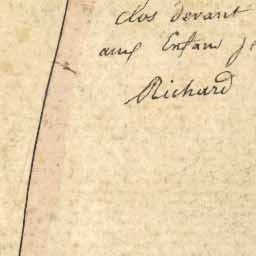 clos devant
aux Enfans je
Richard